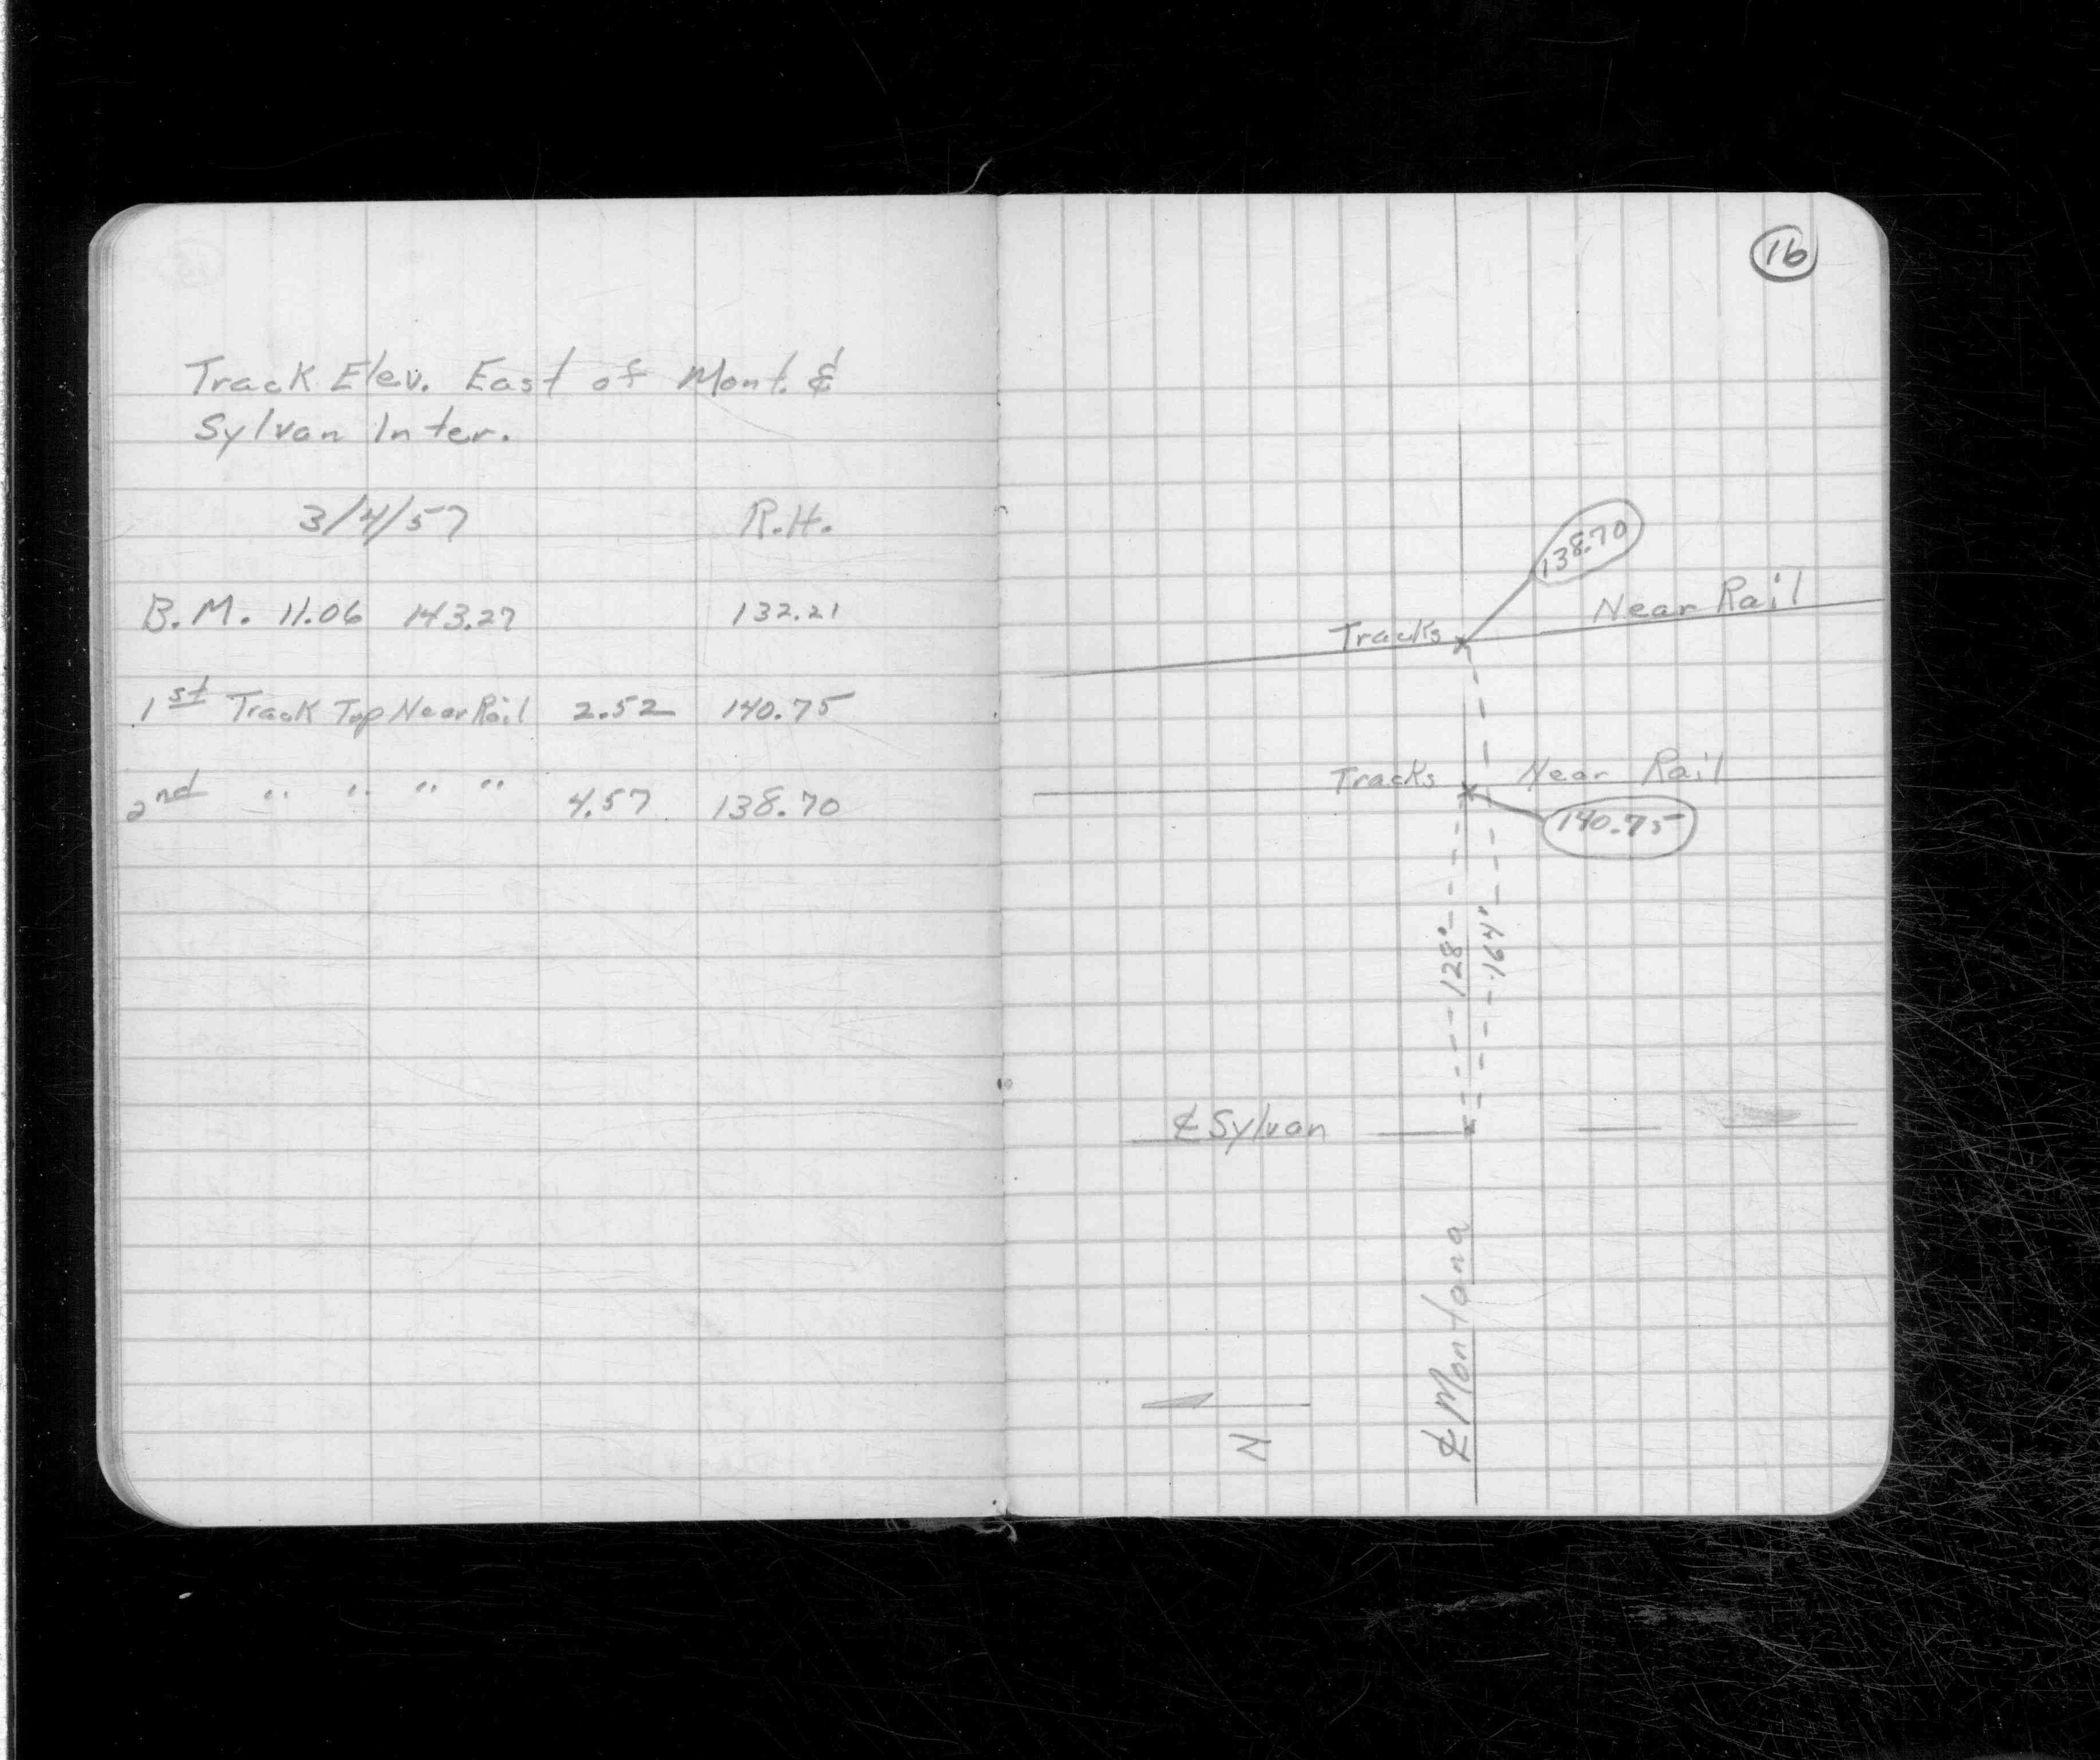 Track Elev. East of Mont. &
Sylvan Inter.
3/4/57 R.H.
B.M. 11.06 143.27 132.21
1st Track Top Near Rail 2.52 140.75
2nd " " " " 4.57 138.70
16
138.70
Near Rail
Tracks
Tracks Near Rail
140.75
128'
164'
℄ Sylvan
℄ Montana
N